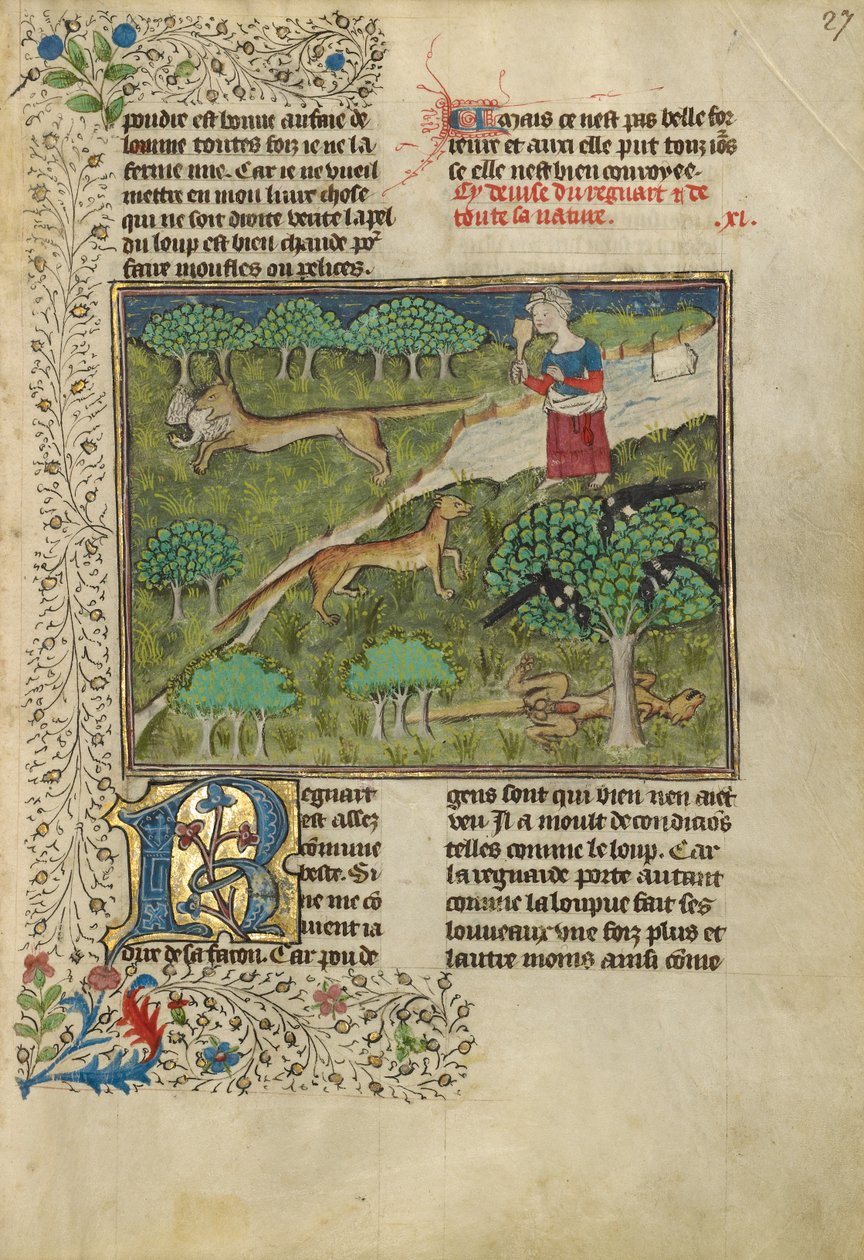 27
poudre est bonne au fuie de
lomme toutes foiz ie ne la
ferme mie. Car ie ne vueil
mettre en mon liure chose
qui ne soit droite verite la pel
du loup est bien chaude por
faire moufles ou pelices.
Mais ce nest pas belle for
reure et aussi elle put touz iōs
se elle nest bien conroyee.
Cy deuise du regnart & de
toute sa nature. .xi.
Regnart
est assez
cōmune
beste. Si
ne me cō
uient ia
dire de sa facon. Car pou de
gens sont qui bien nen aiēt
veu Il a moult de condiciōs
telles comme le loup. Car
la regnarde porte autant
comme la loupue fait ses
louueaux vne foiz plus et
lautre moins ainsi cōme